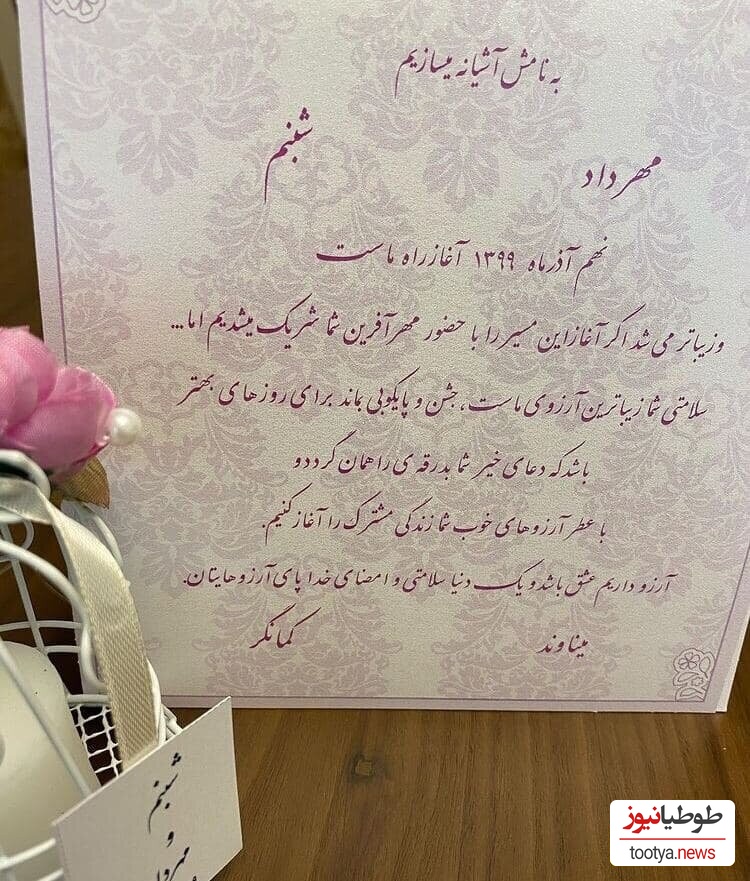 به نامش آشیانه میسازیم
شبنم
مهرداد
نهم آذرماه ۱۳۹۹ آغاز راه ماست
وزیباتر می شد اگر آغاز این مسیر را با حضور مهرآفرین شما شریک میشدیم اما...
سلامتی شما زیباترین آرزوی ماست، جشن و پایکوبی بماند برای روزهای بهتر
باشد که دعای خیر شما بدرقه ی راهمان گردد و
با عطر آرزوهای خوب شما زندگی مشترک را آغاز کنیم.
آرزو داریم عشق باشد و یک دنیا سلامتی و امضای خدا پای آرزوهایتان.
میناوند
کمانگر
شبنم
و
طوطیانیوز
tootya.news